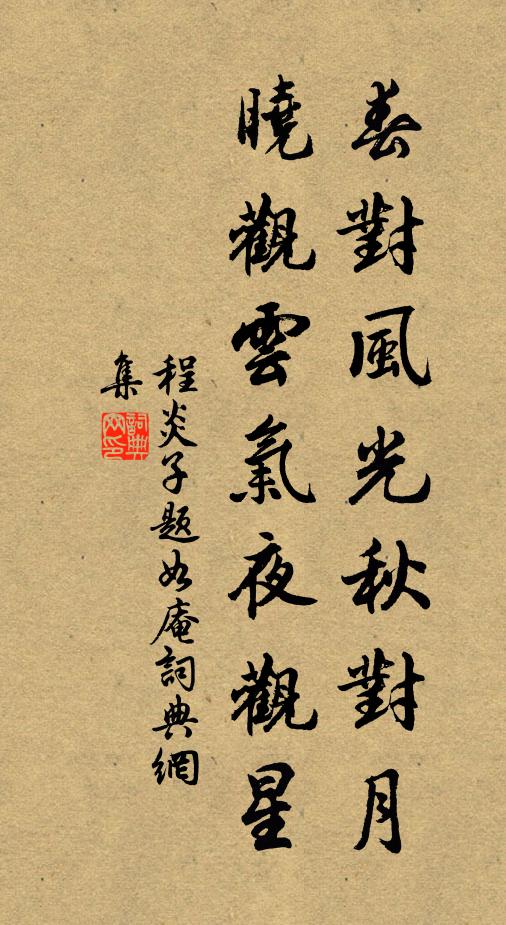 春對風光秋對月
曉觀雲氣夜觀星
程炎子題如庵詞典網
集
詞典
网印